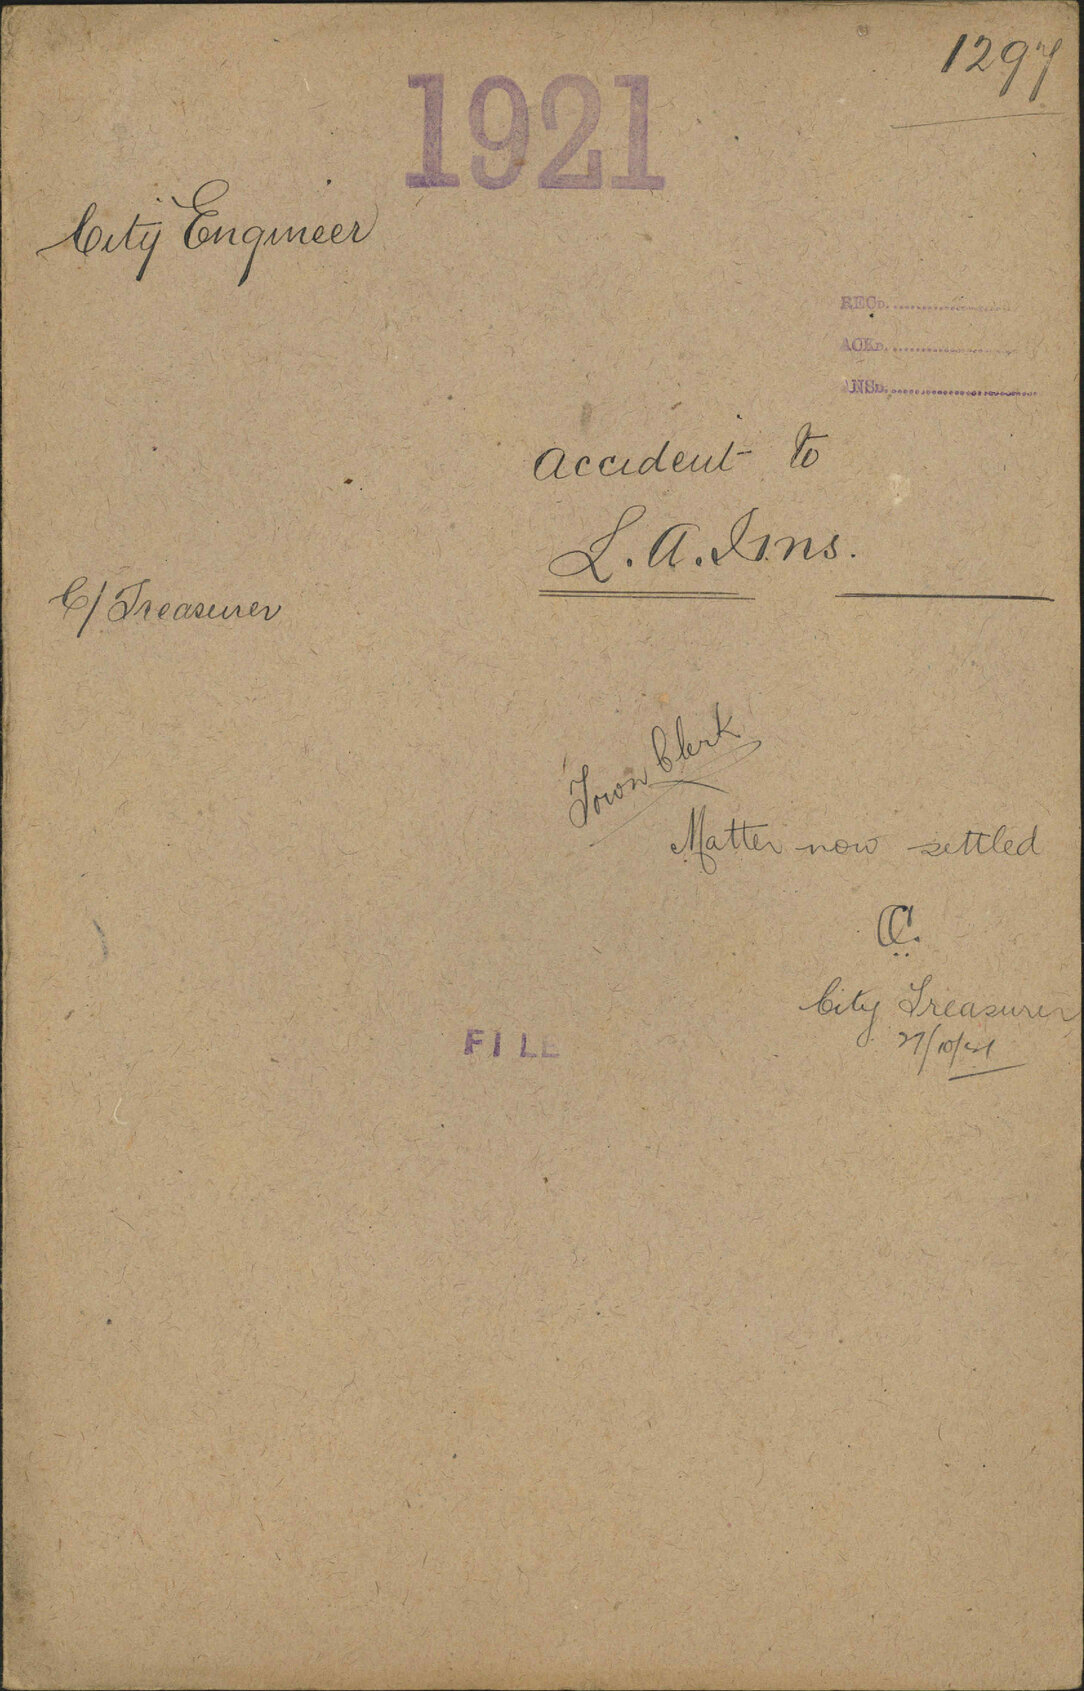 1297
1921
City Engineer
RECD.
ACKD.
ANSD.
Accident to
L. A. Inns.
C/Treasurer
Town Clerk
Matter now settled
City Treasurer
27/10/21
FILE